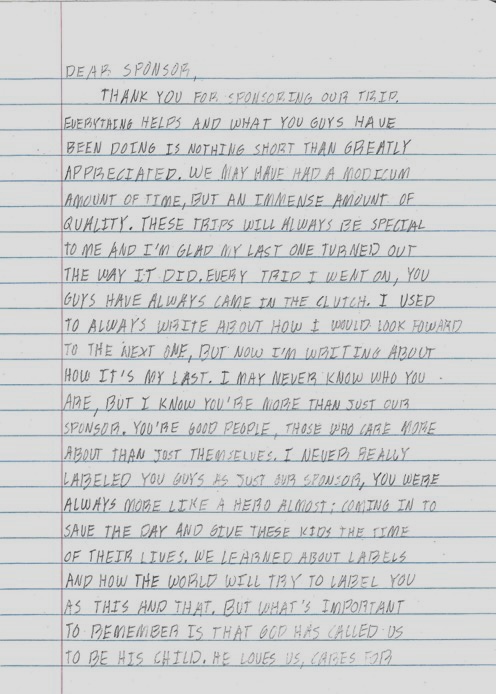 DEAR SPONSOR,
THANK YOU FOR SPONSORING OUR TRIP.
EVERYTHING HELPS AND WHAT YOU GUYS HAVE
BEEN DOING IS NOTHING SHORT THAN GREATLY
APPRECIATED. WE MAY HAVE HAD A MODICUM
AMOUNT OF TIME, BUT AN IMMENSE AMOUNT OF
QUALITY. THESE TRIPS WILL ALWAYS BE SPECIAL
TO ME AND I'M GLAD MY LAST ONE TURNED OUT
THE WAY IT DID. EVERY TRIP I WENT ON, YOU
GUYS HAVE ALWAYS CAME IN THE CLUTCH. I USED
TO ALWAYS WRITE ABOUT HOW I WOULD LOOK FOWARD
TO THE NEXT ONE, BUT NOW I'M WRITING ABOUT
HOW IT'S MY LAST. I MAY NEVER KNOW WHO YOU
ARE, BUT I KNOW YOU'RE MORE THAN JUST OUR
SPONSOR. YOU'RE GOOD PEOPLE, THOSE WHO CARE MORE
ABOUT THAN JUST THEMSELVES. I NEVER REALLY
LABELED YOU GUYS AS JUST OUR SPONSOR, YOU WERE
ALWAYS MORE LIKE A HERO ALMOST; COMING IN TO
SAVE THE DAY AND GIVE THESE KIDS THE TIME
OF THEIR LIVES. WE LEARNED ABOUT LABELS
AND HOW THE WORLD WILL TRY TO LABEL YOU
AS THIS AND THAT. BUT WHAT'S IMPORTANT
TO REMEMBER IS THAT GOD HAS CALLED US
TO BE HIS CHILD. HE LOVES US, CARES FOR